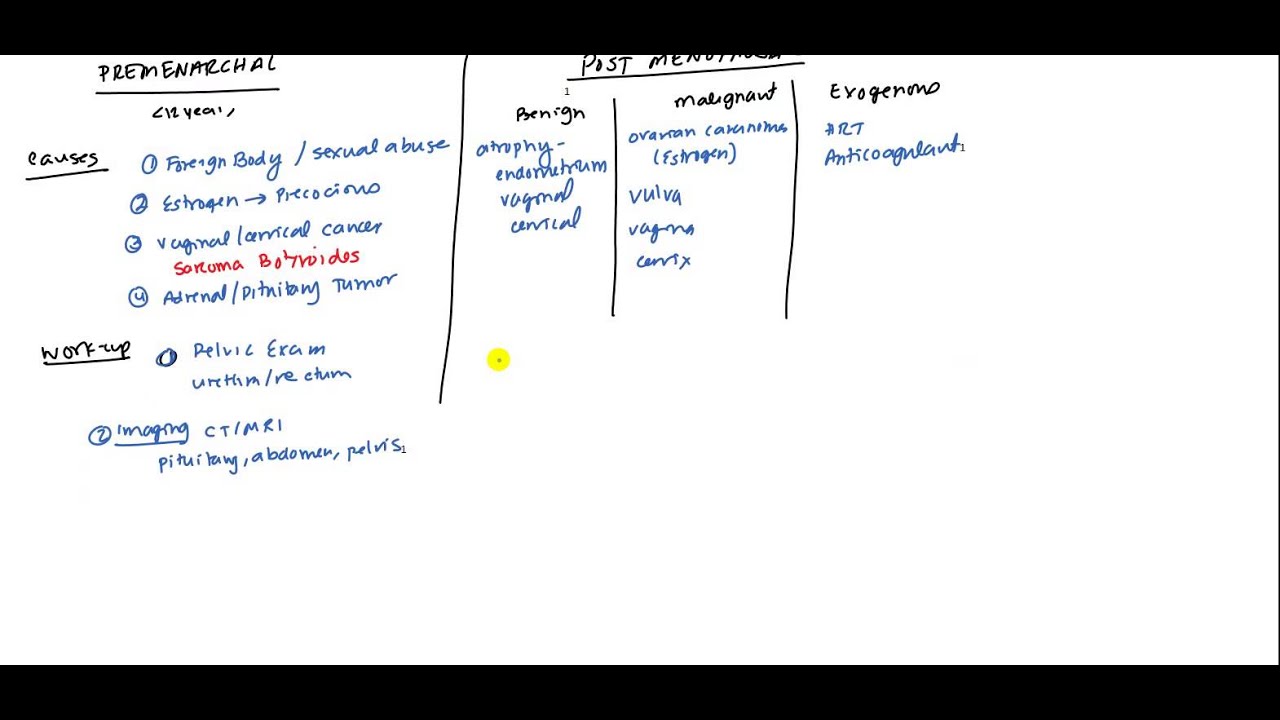 PREMENARCHAL
<12 year,
Causes
① Foreign Body / sexual abuse
② Estrogen → Precocious
③ Vaginal/cervical cancer
Sarcoma Botryoides
④ Adrenal/Pituitary Tumor
Work-up
① Pelvic Exam
urethra/rectum
② Imaging CT/MRI
pituitary, abdomen, pelvis 1
POST MENOPAUSAL
1
Benign
atrophy -
endometrium
vaginal
cervical
malignant
ovarian carcinoma
(Estrogen)
vulva
vagina
cervix
Exogenous
HRT
Anticoagulant 1